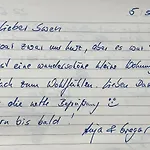 5 s
lieber Swen
war zwar nur kurz, aber es war
ast eine wunderschöne kleine Wohnung
ach zum Wohlfühlen. Lieben Dank
die nette Begrüßung ☺
rn bis bald!
Anja & Gregor